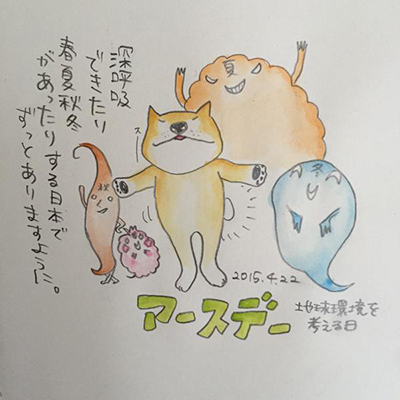 深呼吸
できたり
春夏秋冬
があったりする日本で
ずっとありますように。
スー
夏
秋
冬
2015.4.22
アースデー
地球環境を
考える日